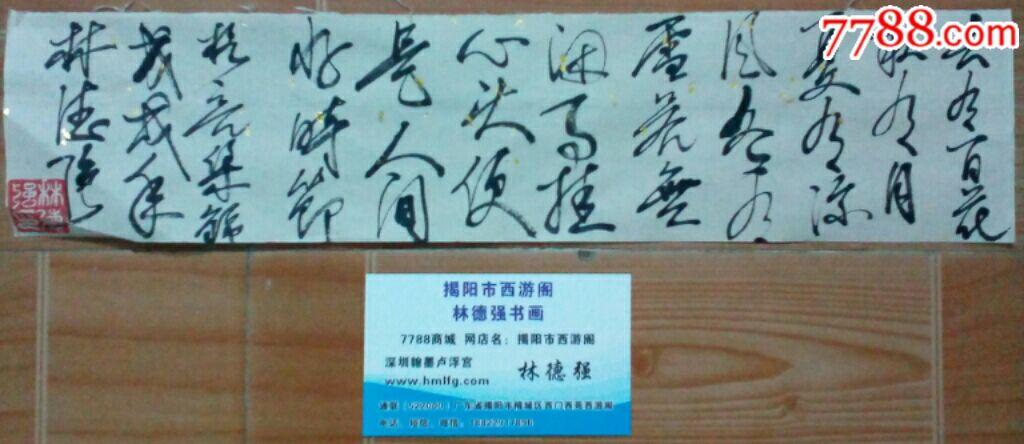 7788.com
春有百花
秋有月
夏有凉
风冬有
雪若無
闲事挂
心头便
是人间
好时節
格言集锦
戊戌年
林德强
揭阳市西游阁
林德强书画
7788商城 网店名：揭阳市西游阁
深圳翰墨卢浮宫 林德强
www.hmlfg.com
通联（522000）广东省揭阳市榕城区西门西苑西游阁
电话、短信、微信：